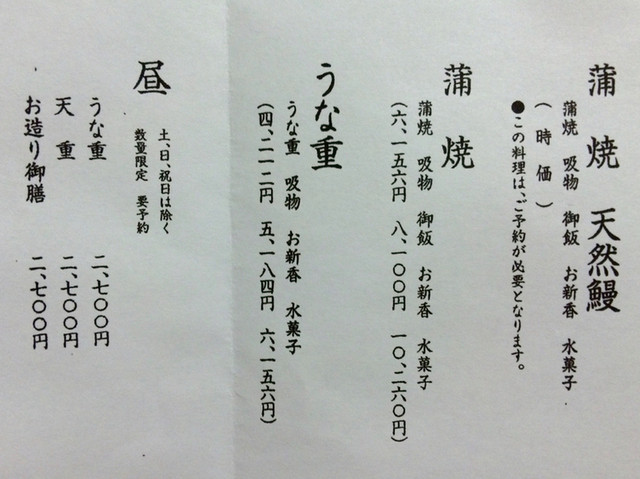 蒲焼 天然鰻
蒲焼 吸物 御飯 お新香 水菓子
(時価)
●この料理は、ご予約が必要となります。
蒲焼
蒲焼 吸物 御飯 お新香 水菓子
(六、一五六円 八、一〇〇円 一〇、二六〇円)
うな重
うな重 吸物 お新香 水菓子
(四、二一二円 五、一八四円 六、一五六円)
昼
土、日、祝日は除く
数量限定 要予約
うな重 二、七〇〇円
天重 二、七〇〇円
お造り御膳 二、七〇〇円